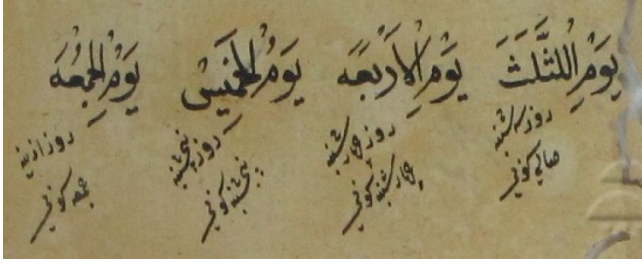 يَوْمِ اللثَّلَثَ يَوْمِ الْاَرْبَعَه يَوْمُ الْخَمَيسْ يَوْمِ الْجُمْعَه
روز سه شنبه روز چهارشنبه روز پنجشنبه روز ازینه
صالی کونی چهارشنبه کونی پنجشنبه کونی جمعه کونی